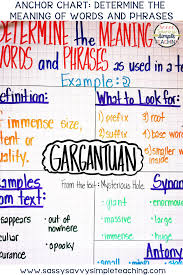 ANCHOR CHART: DETERMINE THE
MEANING OF WORDS AND PHRASES
DETERMINE the MEANING
WORDS and PHRASES as used in a te
Example: 2
efinition:
immense size,
tent, or
uality.
What to Look for:
1) prefix
2) suffix
3) root word
4) base word
GARGANTUAN
From the text: Mysterious Hole
amples
om text:
sappears
ccular
out of
nowhere
spooky
Syno
giant
enormous
massive
large
huge
immense
Antony
www.sassysavvysimpleteaching.com